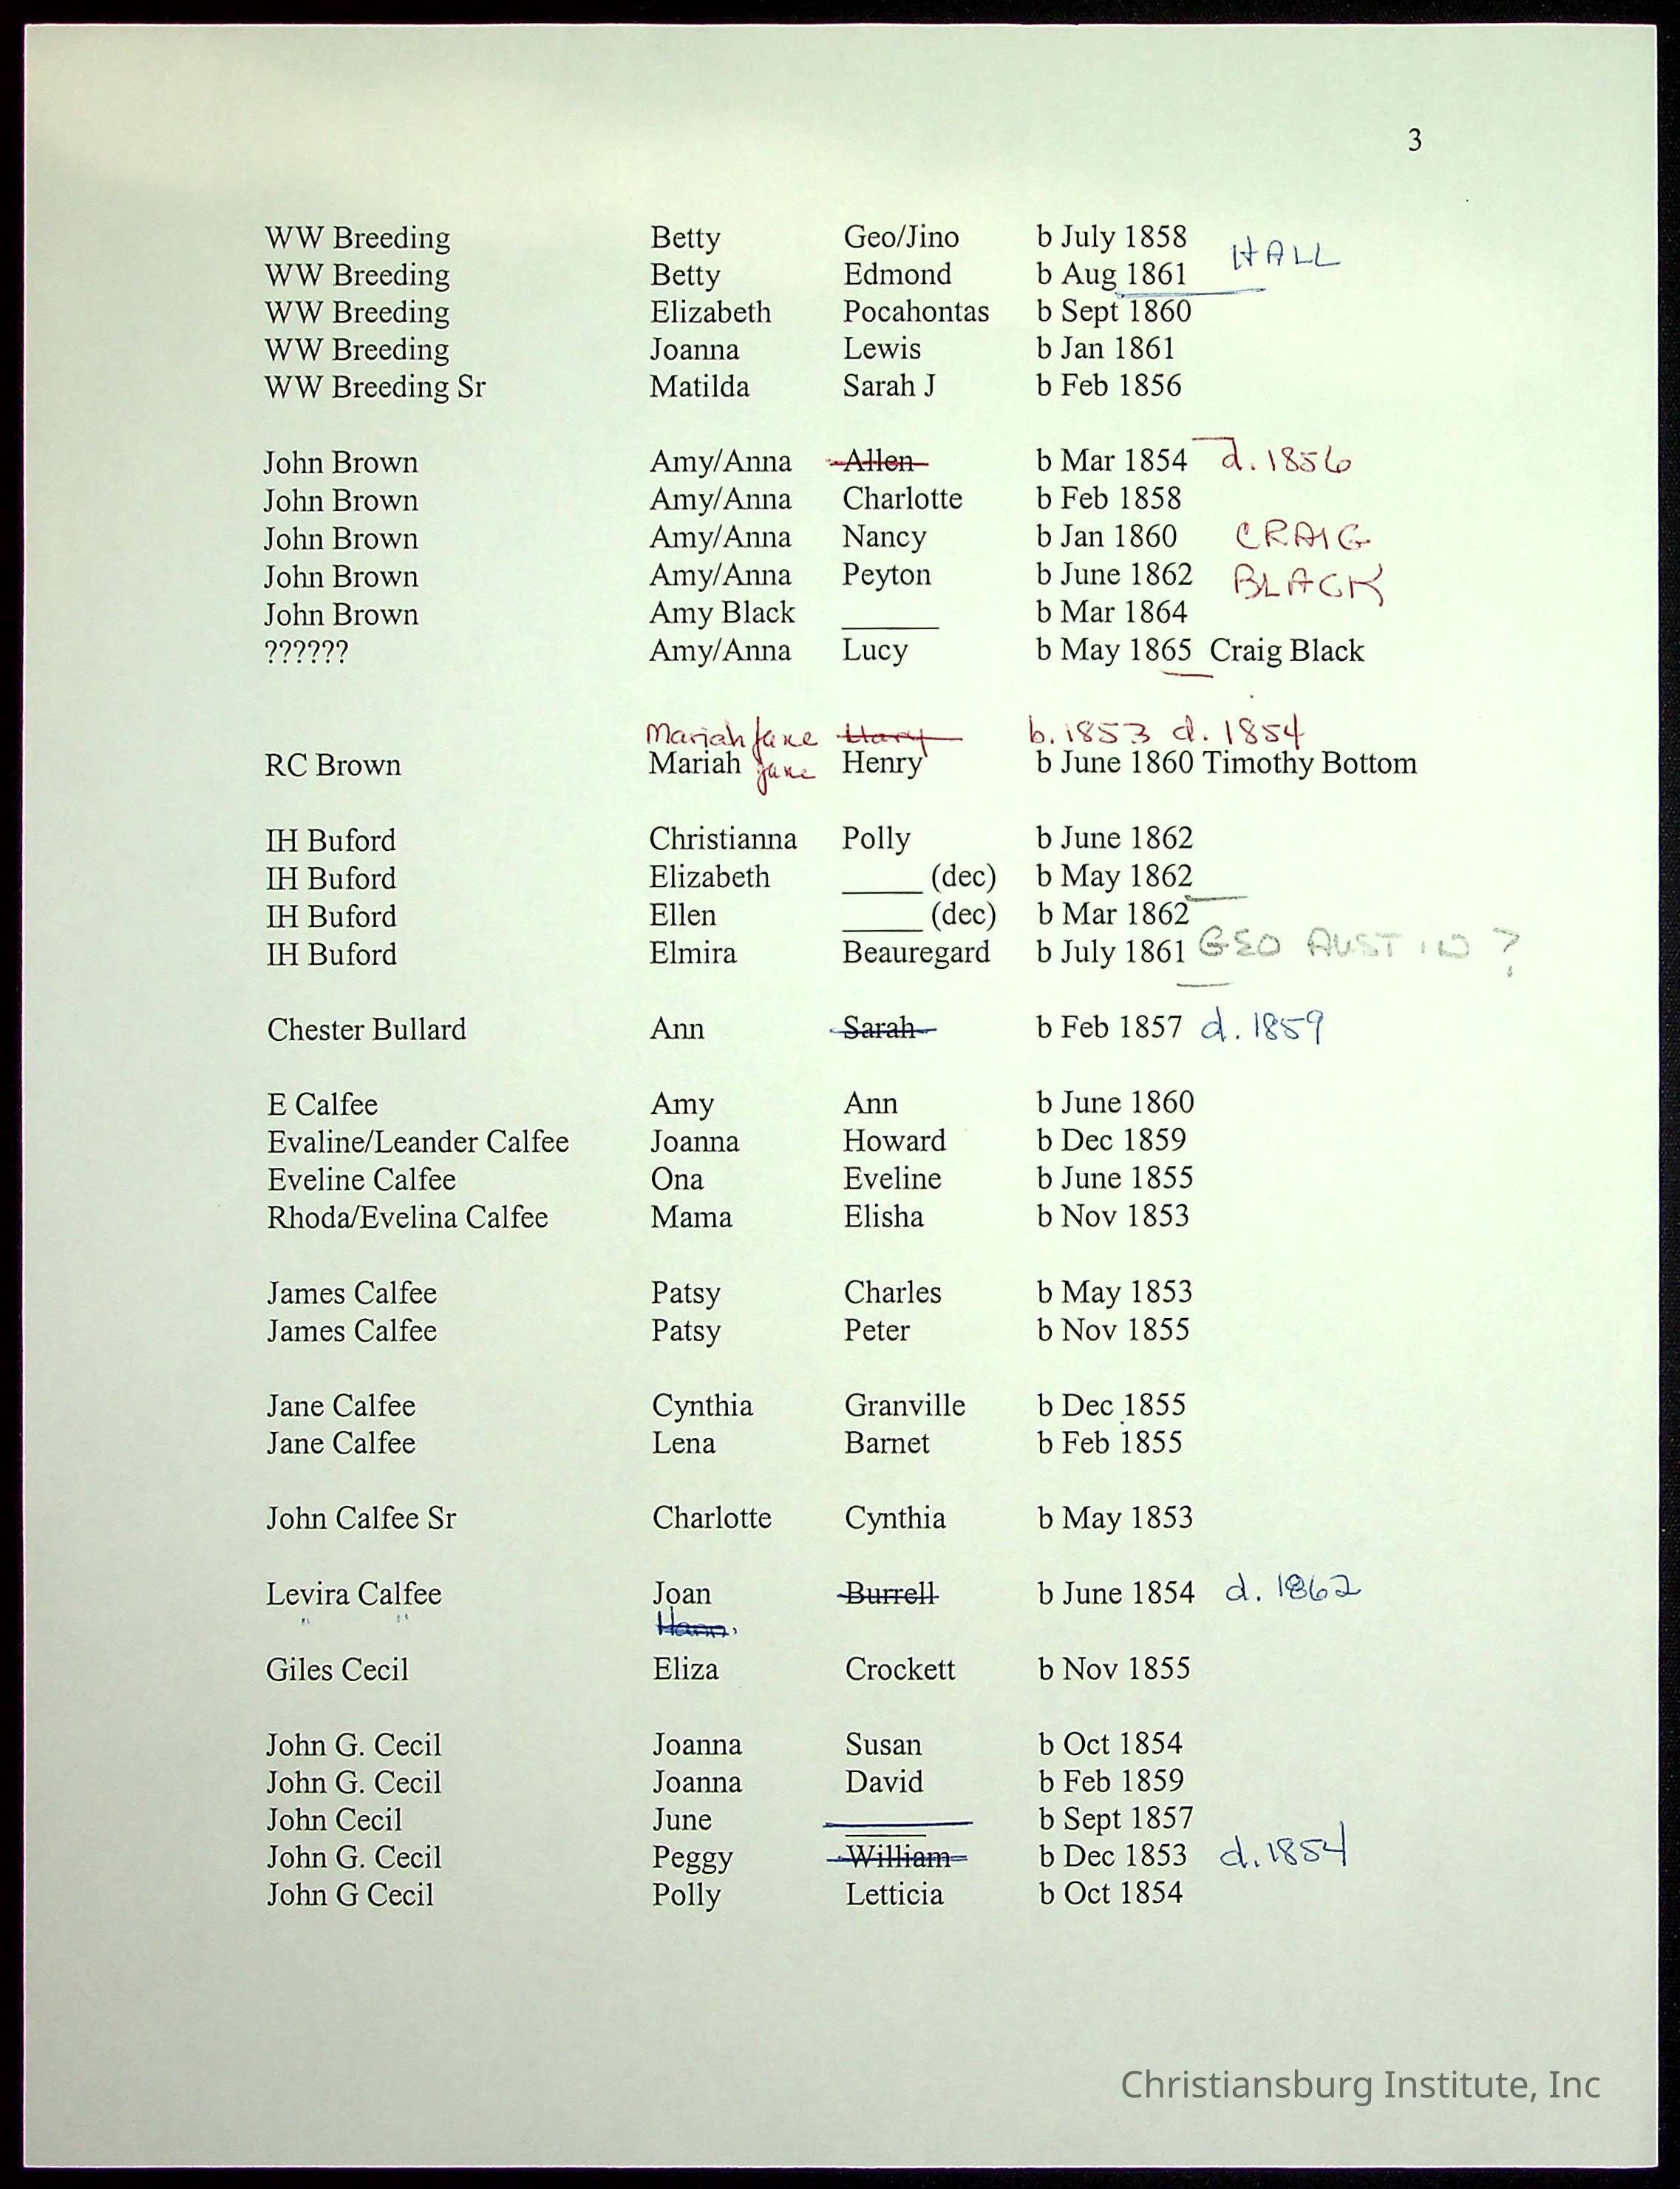 3
WW Breeding Betty Geo/Jino b July 1858 HALL
WW Breeding Betty Edmond b Aug 1861
WW Breeding Elizabeth Pocahontas b Sept 1860
WW Breeding Joanna Lewis b Jan 1861
WW Breeding Sr Matilda Sarah J b Feb 1856
John Brown Amy/Anna Allen b Mar 1854 d. 1856
John Brown Amy/Anna Charlotte b Feb 1858
John Brown Amy/Anna Nancy b Jan 1860 CRAIG
John Brown Amy/Anna Peyton b June 1862 BLACK
John Brown Amy Black ______ b Mar 1864
?????? Amy/Anna Lucy b May 1865 Craig Black
Mariah Jane b. 1853 d. 1854
RC Brown Mariah Jane Henry b June 1860 Timothy Bottom
IH Buford Christianna Polly b June 1862
IH Buford Elizabeth _____ (dec) b May 1862
IH Buford Ellen _____ (dec) b Mar 1862
IH Buford Elmira Beauregard b July 1861 GEO AUSTIN ?
Chester Bullard Ann Sarah b Feb 1857 d. 1859
E Calfee Amy Ann b June 1860
Evaline/Leander Calfee Joanna Howard b Dec 1859
Eveline Calfee Ona Eveline b June 1855
Rhoda/Evelina Calfee Mama Elisha b Nov 1853
James Calfee Patsy Charles b May 1853
James Calfee Patsy Peter b Nov 1855
Jane Calfee Cynthia Granville b Dec 1855
Jane Calfee Lena Barnet b Feb 1855
John Calfee Sr Charlotte Cynthia b May 1853
Levira Calfee Joan Burrell b June 1854 d. 1862
" "
Giles Cecil Eliza Crockett b Nov 1855
John G. Cecil Joanna Susan b Oct 1854
John G. Cecil Joanna David b Feb 1859
John Cecil June _____ b Sept 1857
John G. Cecil Peggy William b Dec 1853 d. 1854
John G Cecil Polly Letticia b Oct 1854
Christiansburg Institute, Inc